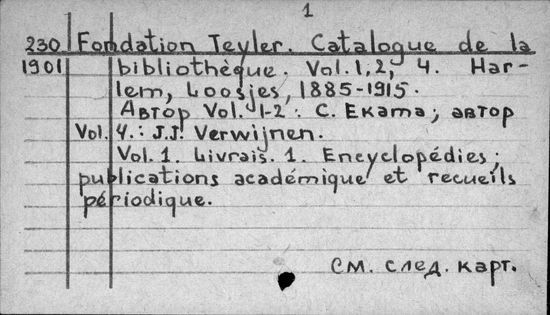 1
230 Fondation Teyler. Catalogue de la
1901 bibliothèque. Vol. 1, 2, 4. Har-
lem, Loosjes, 1885-1915.
Автор Vol. 1-2: C. Екама; автор
Vol. 4.: J.J. Verwijnen.
Vol. 1. Livrais. 1. Encyclopédies;
publications académique et recueils
périodique.
См. след. карт.